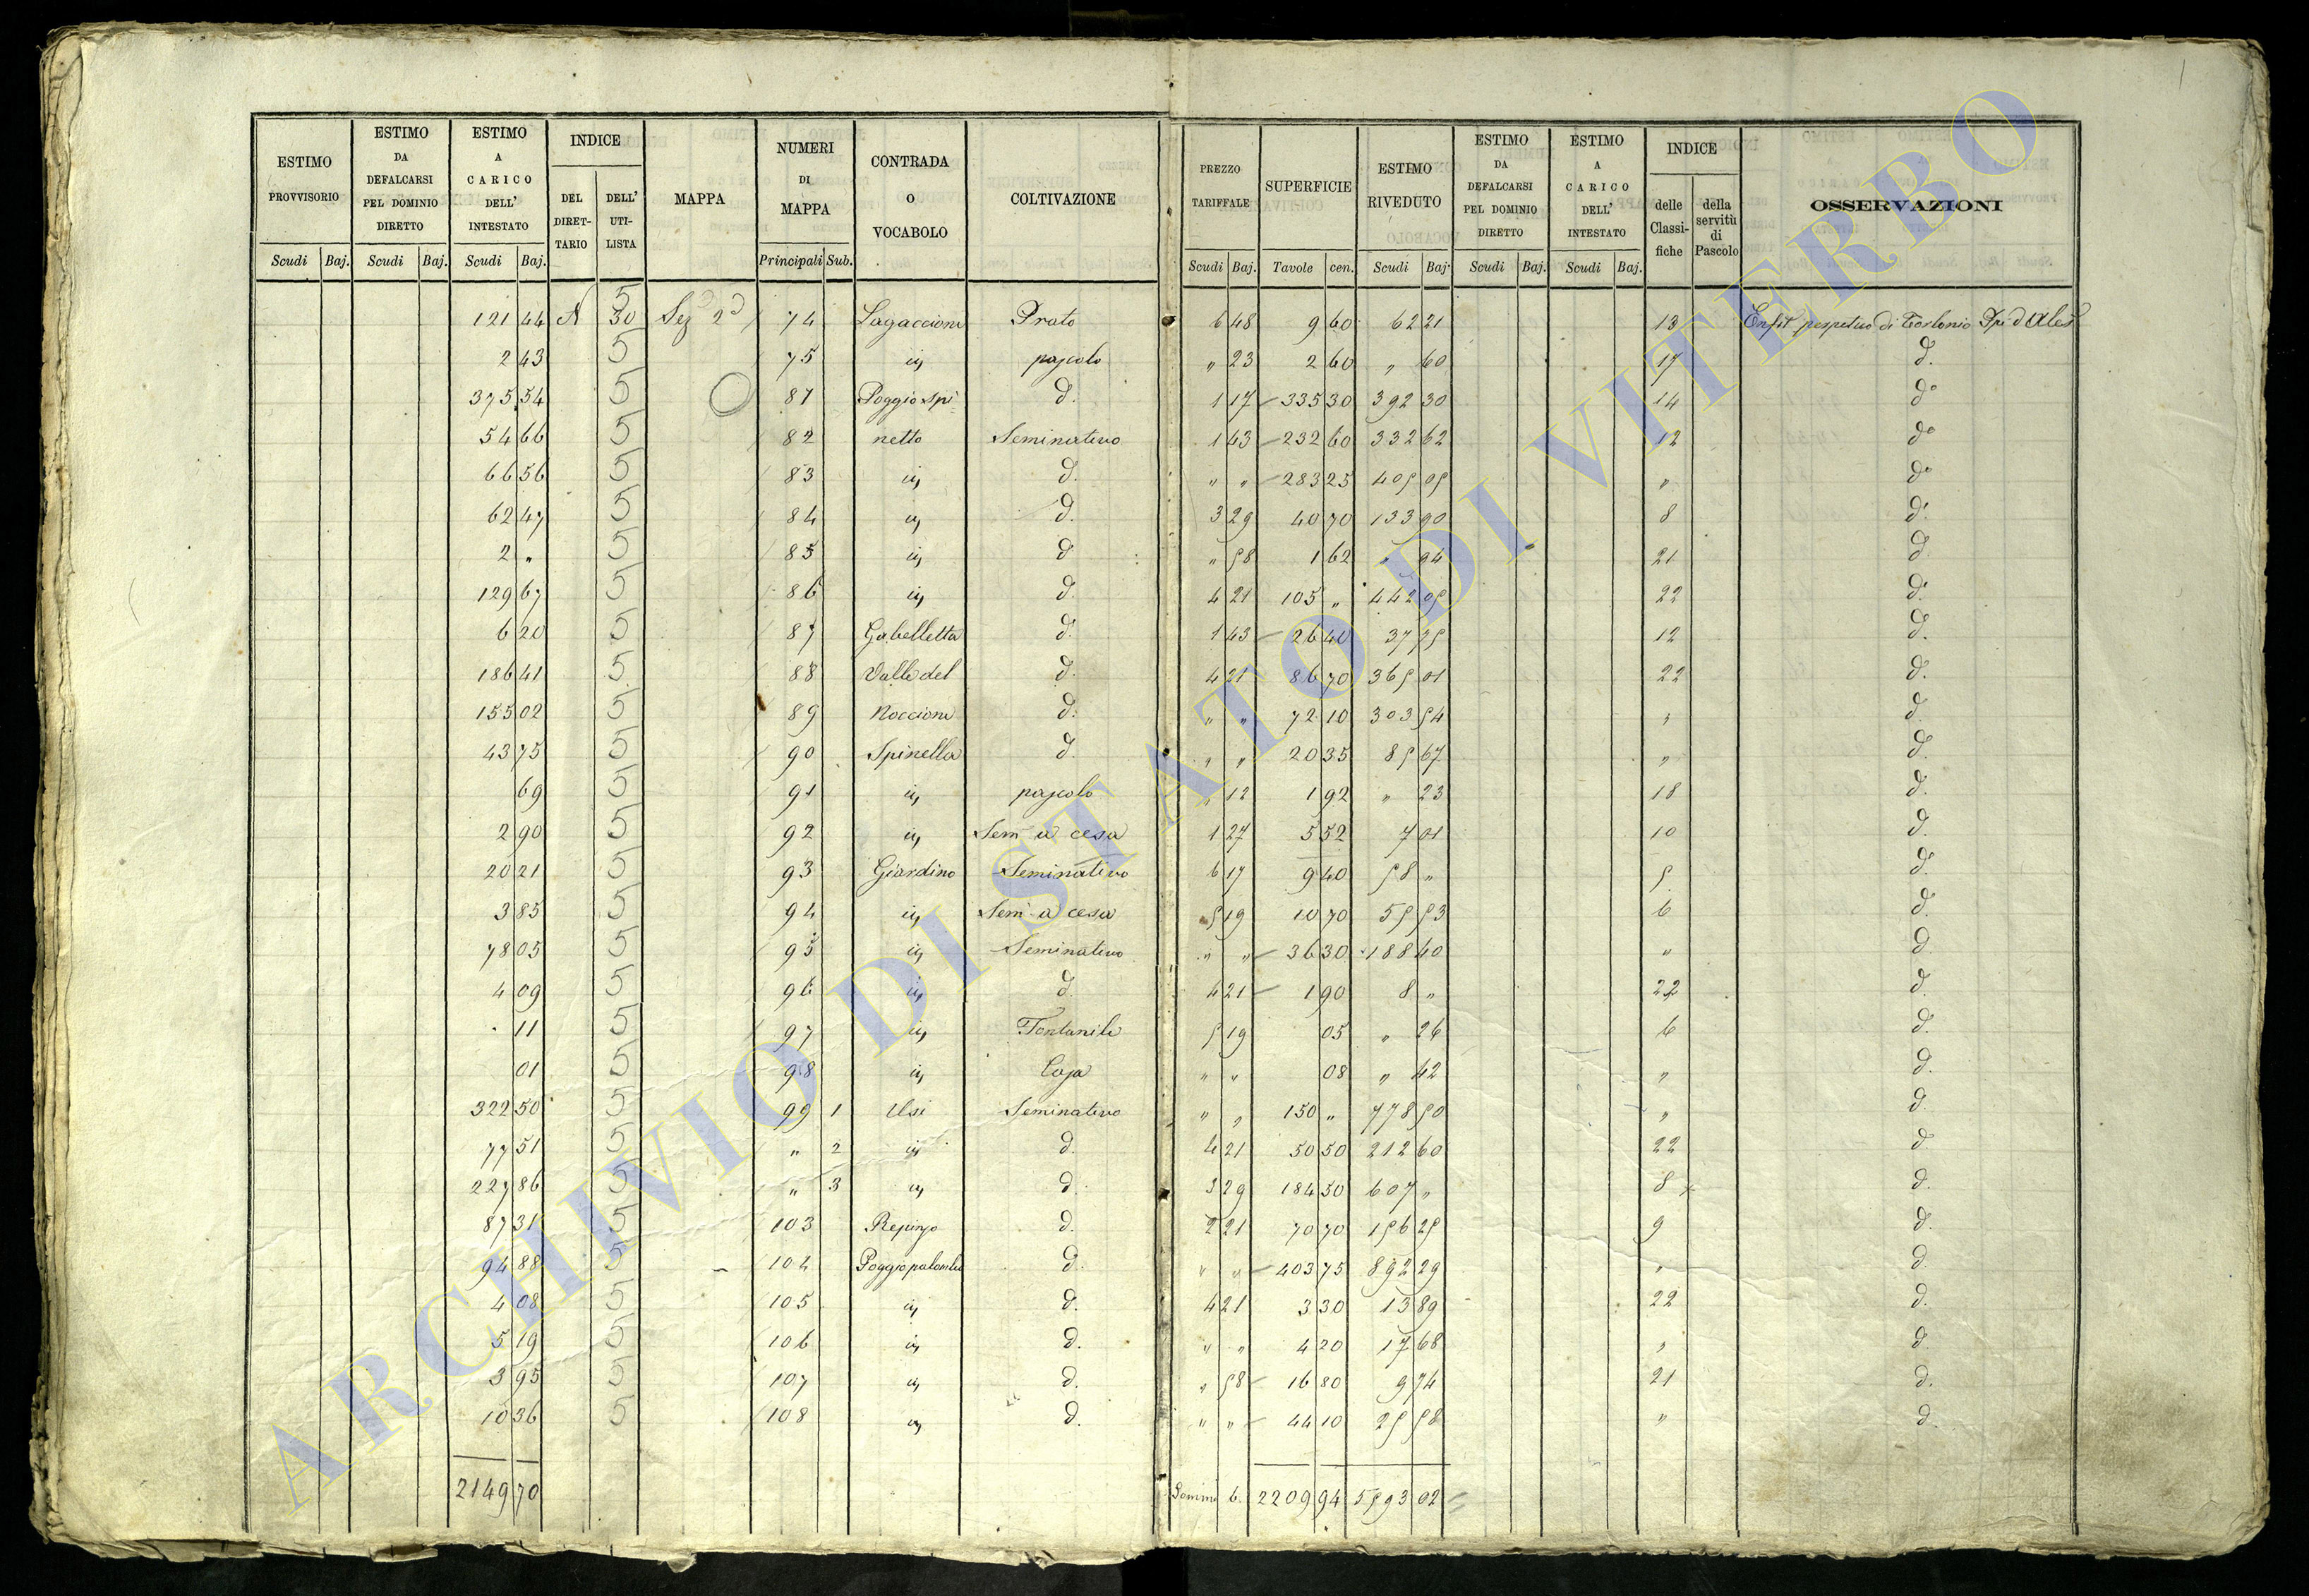 ESTIMO PROVVISORIO | ESTIMO DA DEFALCARSI PEL DOMINIO DIRETTO | ESTIMO A CARICO DELL' INTESTATO | INDICE DEL DIRETTARIO | DELL' UTILISTA | MAPPA | NUMERI DI MAPPA | CONTRADA O VOCABOLO | COLTIVAZIONE | PREZZO TARIFFALE | SUPERFICIE | ESTIMO RIVEDUTO | ESTIMO DA DEFALCARSI PEL DOMINIO DIRETTO | ESTIMO A CARICO DELL' INTESTATO | INDICE delle Classifiche | della servitù di Pascolo | OSSERVAZIONI
Scudi Baj. | Scudi Baj. | Scudi Baj. | Principali Sub. | Scudi Baj. | Tavole cen. | Scudi Baj. | Scudi Baj. | Scudi Baj.
121 44 | A | 5 30 | Sez 2ª | 74 | Lagaccione | Prato | 6 48 | 9 60 | 62 21 | 13 | Enfit perpetuo di Torlonia
2 43 | 5 | 75 | iv, | pascolo | " 23 | 2 60 | " 60 | 17 | d.
375 54 | 5 | 81 | Poggio Spi= | d. | 1 17 | 335 30 | 392 30 | 14 | d°
54 66 | 5 | 82 | netto | Seminativo | 1 43 | 232 60 | 332 62 | 12 | d°
66 56 | 5 | 83 | iv, | d. | " " | 283 25 | 405 05 | " | d°
62 47 | 5 | 84 | iv, | d. | 3 29 | 40 70 | 133 90 | 8 | d.
2 " | 5 | 85 | iv, | d | " 58 | 1 62 | " 94 | 21 | d.
129 67 | 5 | 86 | iv, | d. | 4 21 | 105 " | 442 05 | 22 | d.
6 20 | 5 | 87 | Gabelletta | d. | 1 43 | 26 40 | 37 75 | 12 | d.
186 41 | 5 | 88 | Valle del | d. | 4 21 | 86 70 | 365 01 | 22 | d.
155 02 | 5 | 89 | Roccione | d. | " " | 72 10 | 303 54 | " | d.
43 75 | 5 | 90 | Spinella | d. | " " | 20 35 | 85 67 | " | d.
69 | 5 | 91 | iv, | pascolo | " 12 | 1 92 | " 23 | 18 | d.
2 90 | 5 | 92 | iv, | Sem a cesa | 1 27 | 5 52 | 7 01 | 10 | d.
20 21 | 5 | 93 | Giardino | Seminativo | 6 17 | 9 40 | 58 " | 5 | d.
3 85 | 5 | 94 | iv, | Sem a cesa | 5 19 | 10 70 | 55 53 | 6 | d.
78 05 | 5 | 95 | iv, | Seminativo | " " | 36 30 | 188 40 | " | d
4 09 | 5 | 96 | iv, | d. | 4 21 | 1 90 | 8 " | 22 | d.
11 | 5 | 97 | iv, | Fontanile | 5 19 | 05 | " 26 | 6 | d.
01 | 5 | 98 | iv, | Casa | " " | 08 | " 42 | " | d.
322 50 | 5 | 99 1 | Usi | Seminativo | " " | 150 " | 778 50 | " | d.
77 51 | 5 | " 2 | iv, | d. | 4 21 | 50 50 | 212 60 | 22 | d
227 86 | 5 | " 3 | iv, | d. | 3 29 | 184 50 | 607 " | 8 | d.
87 31 | 5 | 103 | d. | 2 21 | 70 70 | 156 25 | 9 | d.
94 88 | 5 | 104 | Poggio palombo | d. | " " | 403 75 | 892 29 | " | d.
4 08 | 5 | 105 | iv, | d. | 4 21 | 3 30 | 13 89 | 22 | d.
5 19 | 5 | 106 | iv, | d. | " " | 4 20 | 17 68 | " | d.
3 95 | 5 | 107 | iv, | d. | " 58 | 16 80 | 9 74 | 21 | d.
10 36 | 5 | 108 | iv, | d. | " " | 44 10 | 25 58 | " | d.
2149 70 | 2209 94 | 5593 02
ARCHIVIO DI STATO DI VITERBO